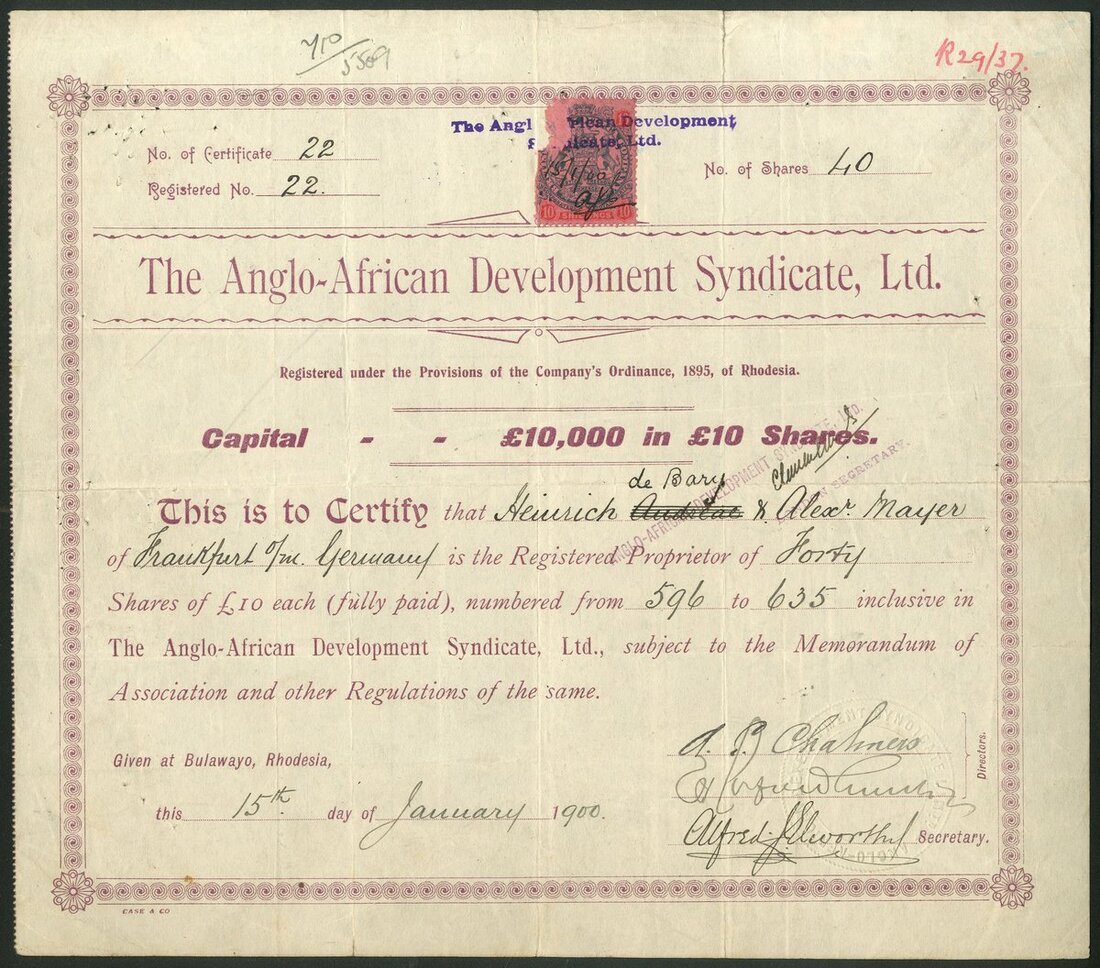 710/5569
R29/37.
The Angl ican Development
Syndicate, Ltd.
No. of Certificate 22
Registered No. 22.
No. of Shares 40
15/1/00
10 SHILLINGS 10
The Anglo-African Development Syndicate, Ltd.
Registered under the Provisions of the Company's Ordinance, 1895, of Rhodesia.
Capital - - £10,000 in £10 Shares.
ANGLO-AFRICAN DEVELOPMENT SYNDICATE, LTD.
SECRETARY.
de Bary
This is to Certify that Heinrich & Alexr. Mayer
of Frankfurt o/m. Germany is the Registered Proprietor of Forty
Shares of £10 each (fully paid), numbered from 596 to 635 inclusive in
The Anglo-African Development Syndicate, Ltd., subject to the Memorandum of
Association and other Regulations of the same.
Given at Bulawayo, Rhodesia,
this 15th day of January 1900.
A. P. Chalmers
Directors.
Alfred J. Elworthy Secretary.
CASE & CO